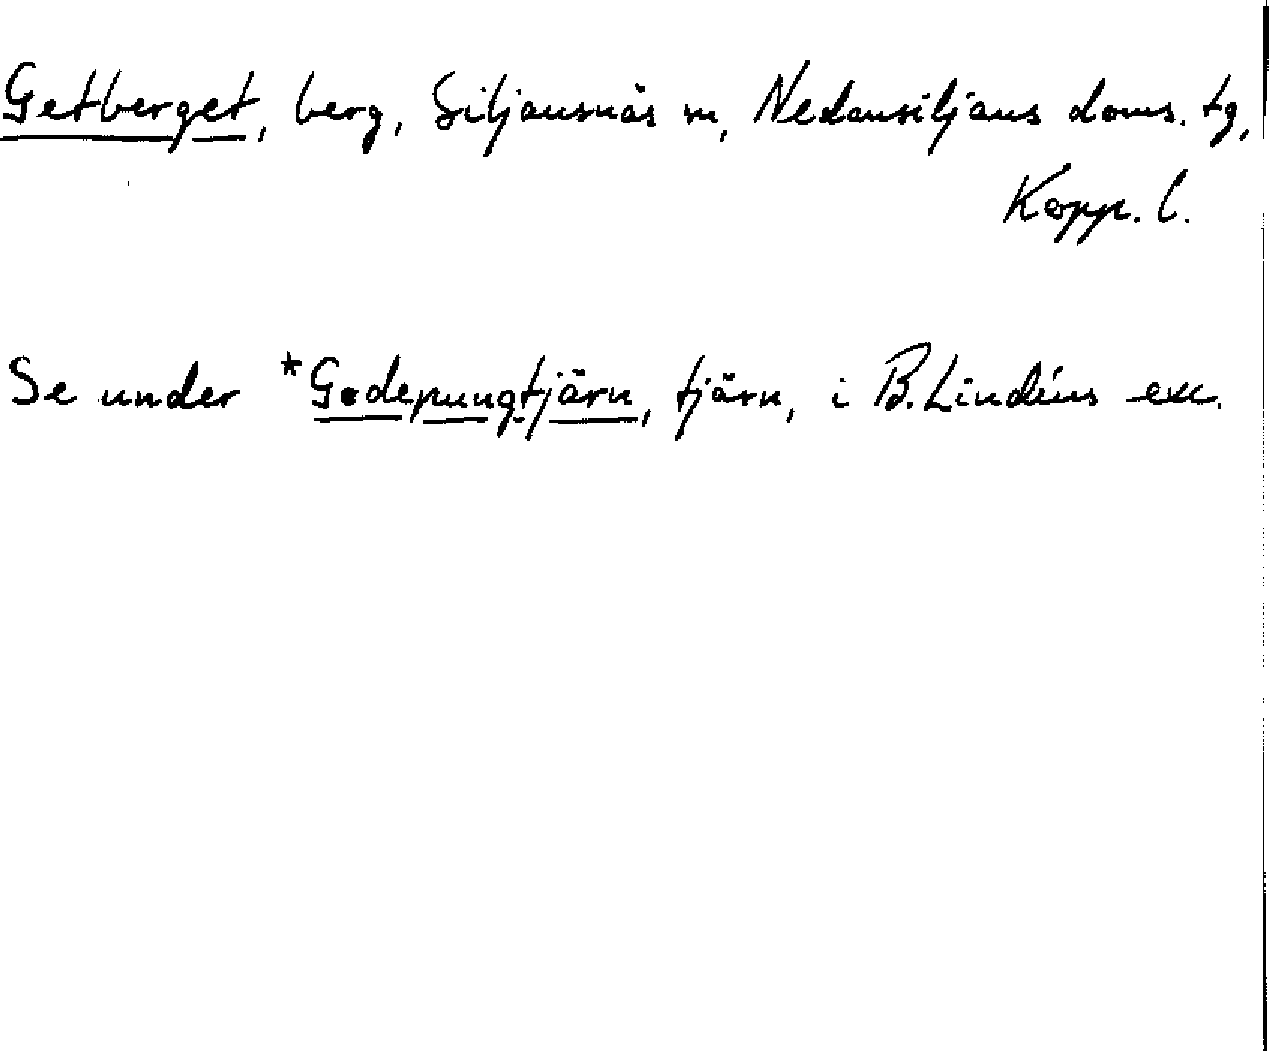 Getberget, berg, Siljansnäs sn, Nedansiljans doms. tg,
Kopp. l.
Se under *Godepungtjärn, tjärn, i B. Lindéns exc.